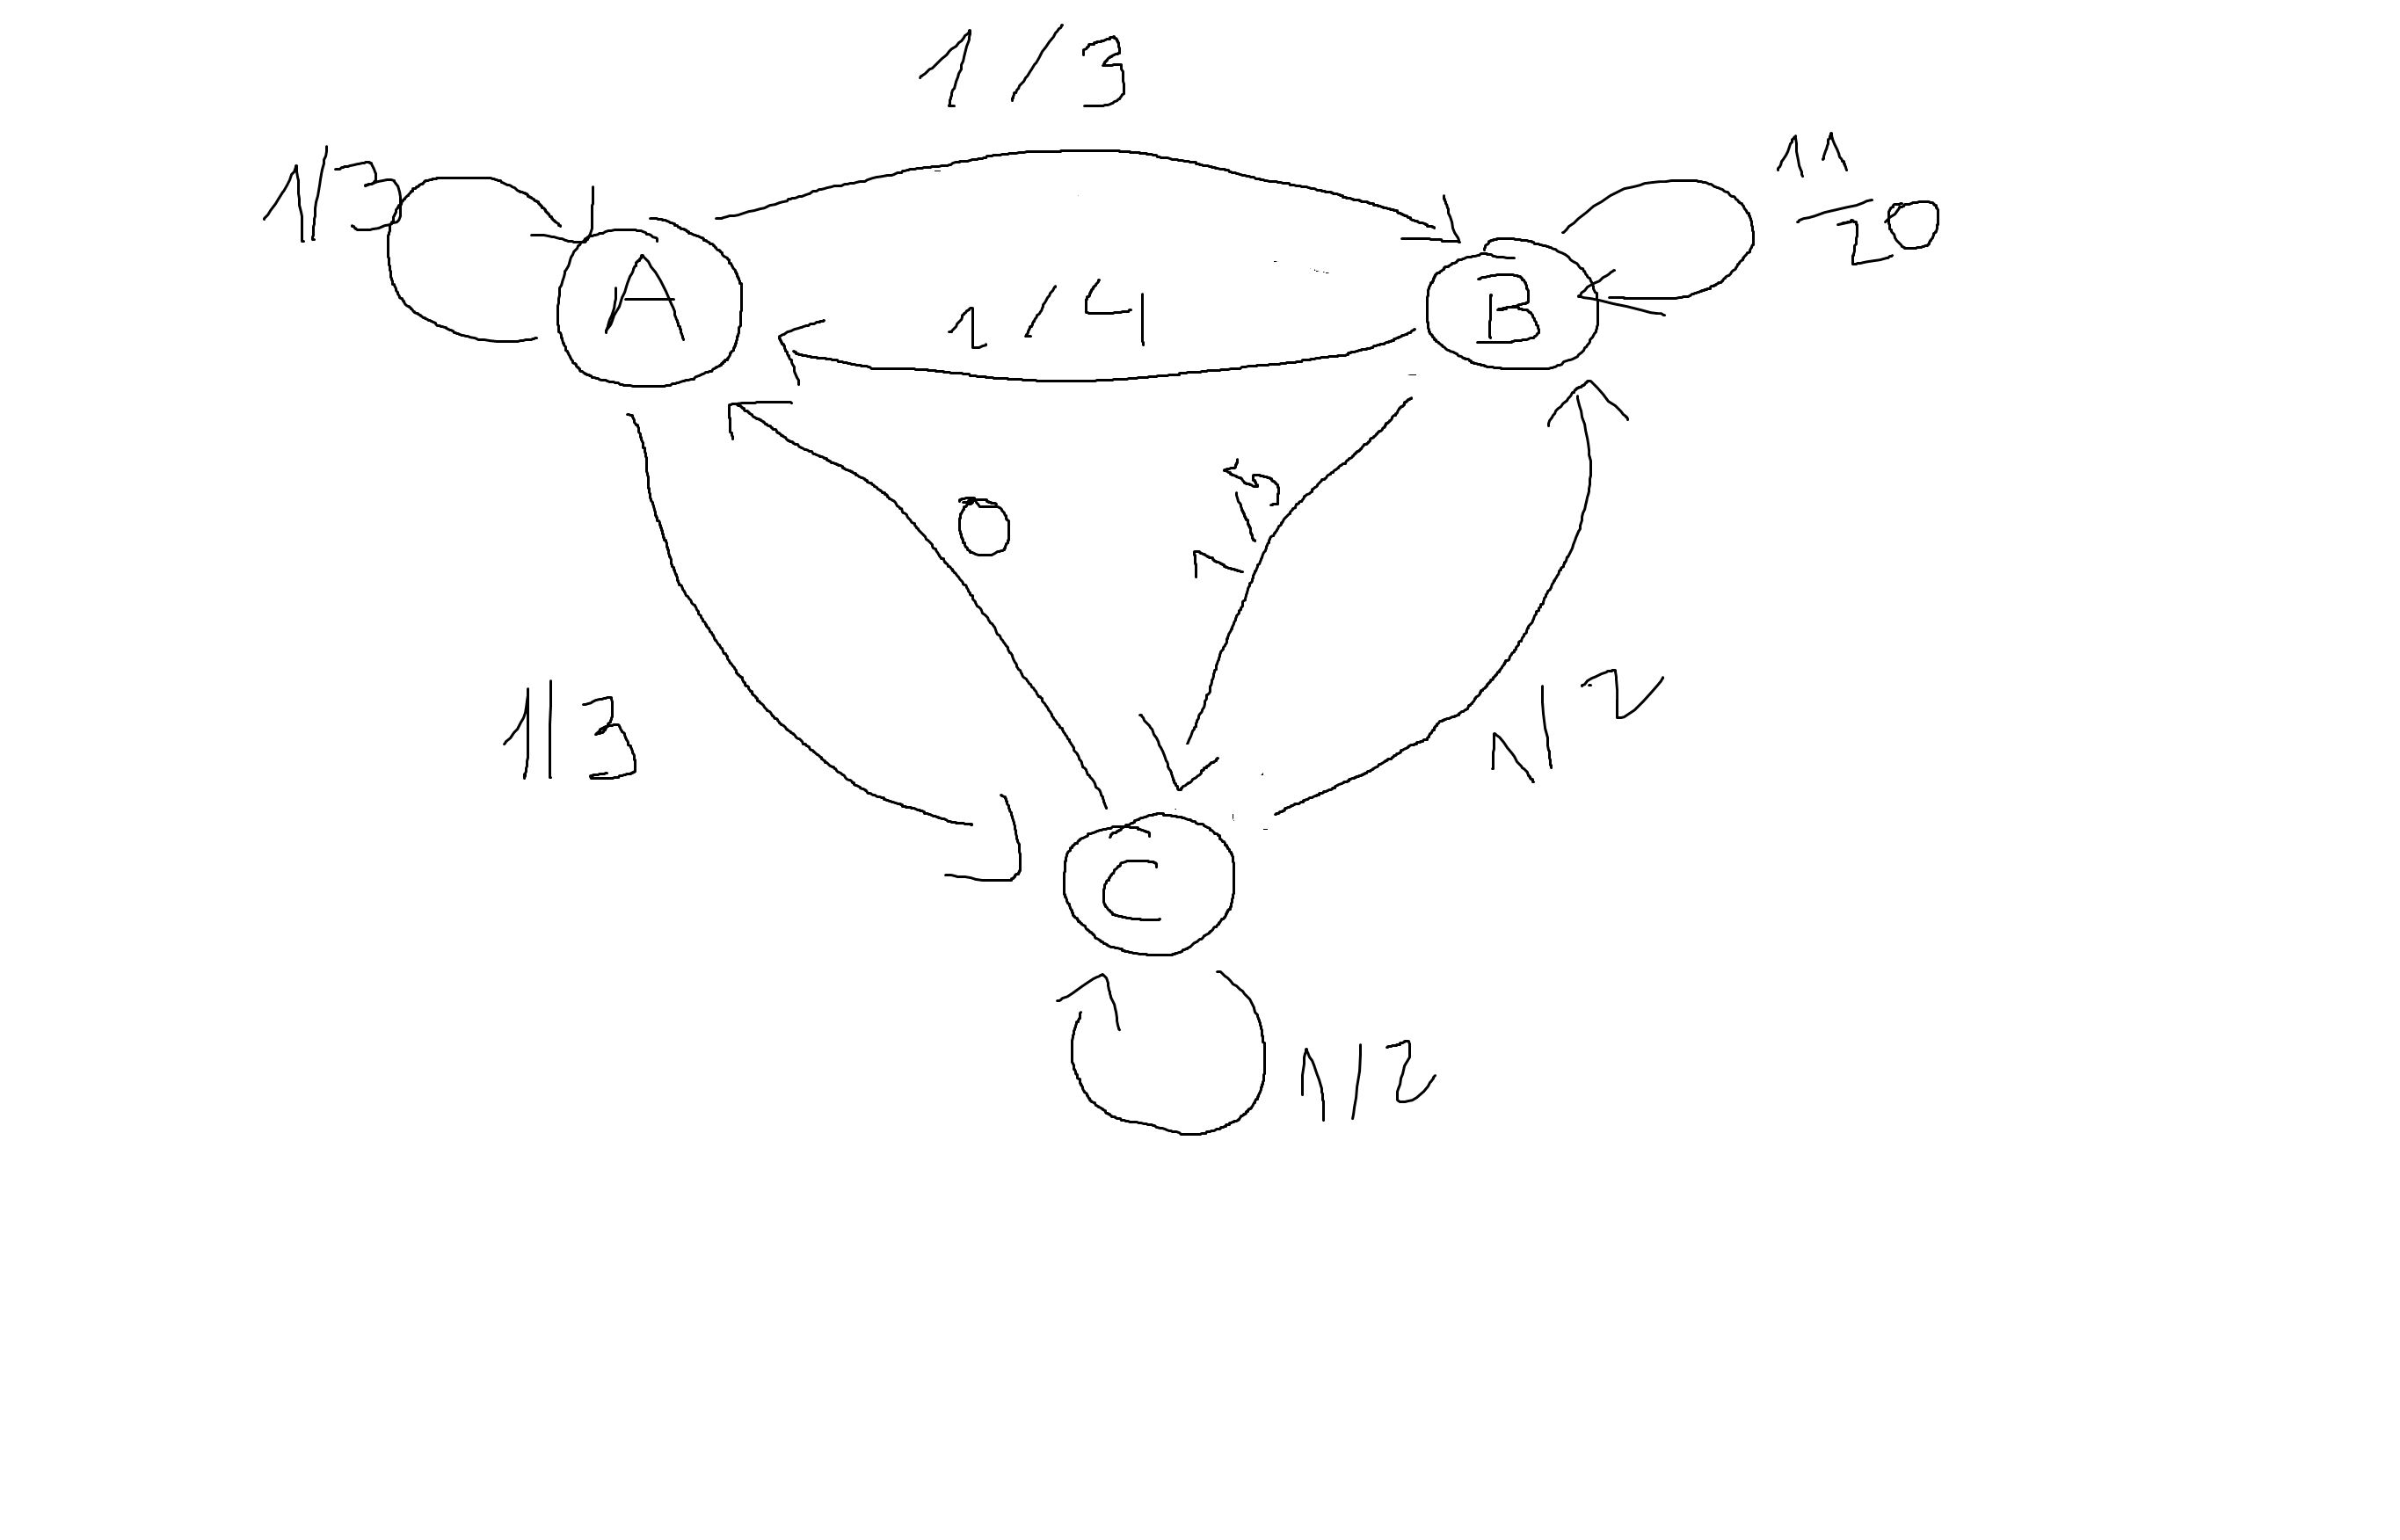 1/3
1/3
11
20
A
B
1/4
0
1/5
1/3
1/2
C
1/2